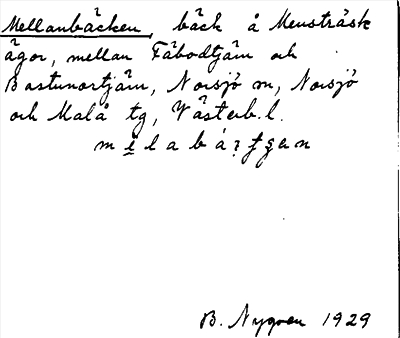 Mellanbäcken, bäck å Mensträsk
ägor, mellan Fäbodtjäm och
Bastunortjäm, Norsjö sn, Norsjö
och Malå tg, Västerb. l.
B. Nygren 1929